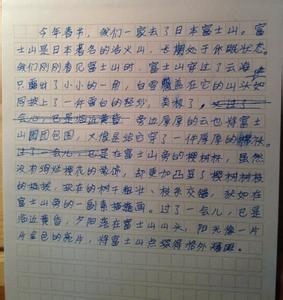 今年春节，我们一家去了日本富士山。富
士山是日本著名的活火山，长期处于休眠状态。
我们刚刚看见富士山时，富士山穿过了云海
只露出了小小的一角，白雪覆盖在它的山头如
同披上了一件雪白的轻纱，美极了。
旁边厚厚的云也将富士
山团团包围，大像是给它穿了一件厚厚的
在富士山旁的樱树林，虽然
没有绚烂樱花的装饰，却更加凸显了樱树树枝
的，现在的树干粗壮、枝条交错，犹如在
富士山旁的一副素描画。过了一会儿，已是
临近黄昏，夕阳落在富士山山头，阳光像一片
片金色的亮片，将富士山点缀得格外